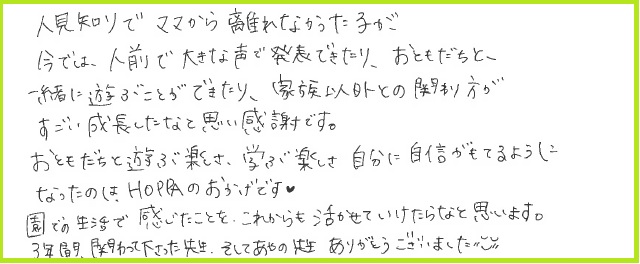 人見知りで ママから離れなかった子が
今では、人前で大きな声で発表できたり、おともだちと、
一緒に遊ぶことができたり、家族以外との関わり方が
すごい成長したなと思い感謝です。
おともだちと遊ぶ楽しさ、学ぶ楽しさ 自分に自信がもてるように
なったのは、HOPPAのおかげです♥
園での生活で 感じたことを、これからも活かせていけたらなと思います。
3年間、関わって下さった先生、そしてあやの先生 ありがとうございました